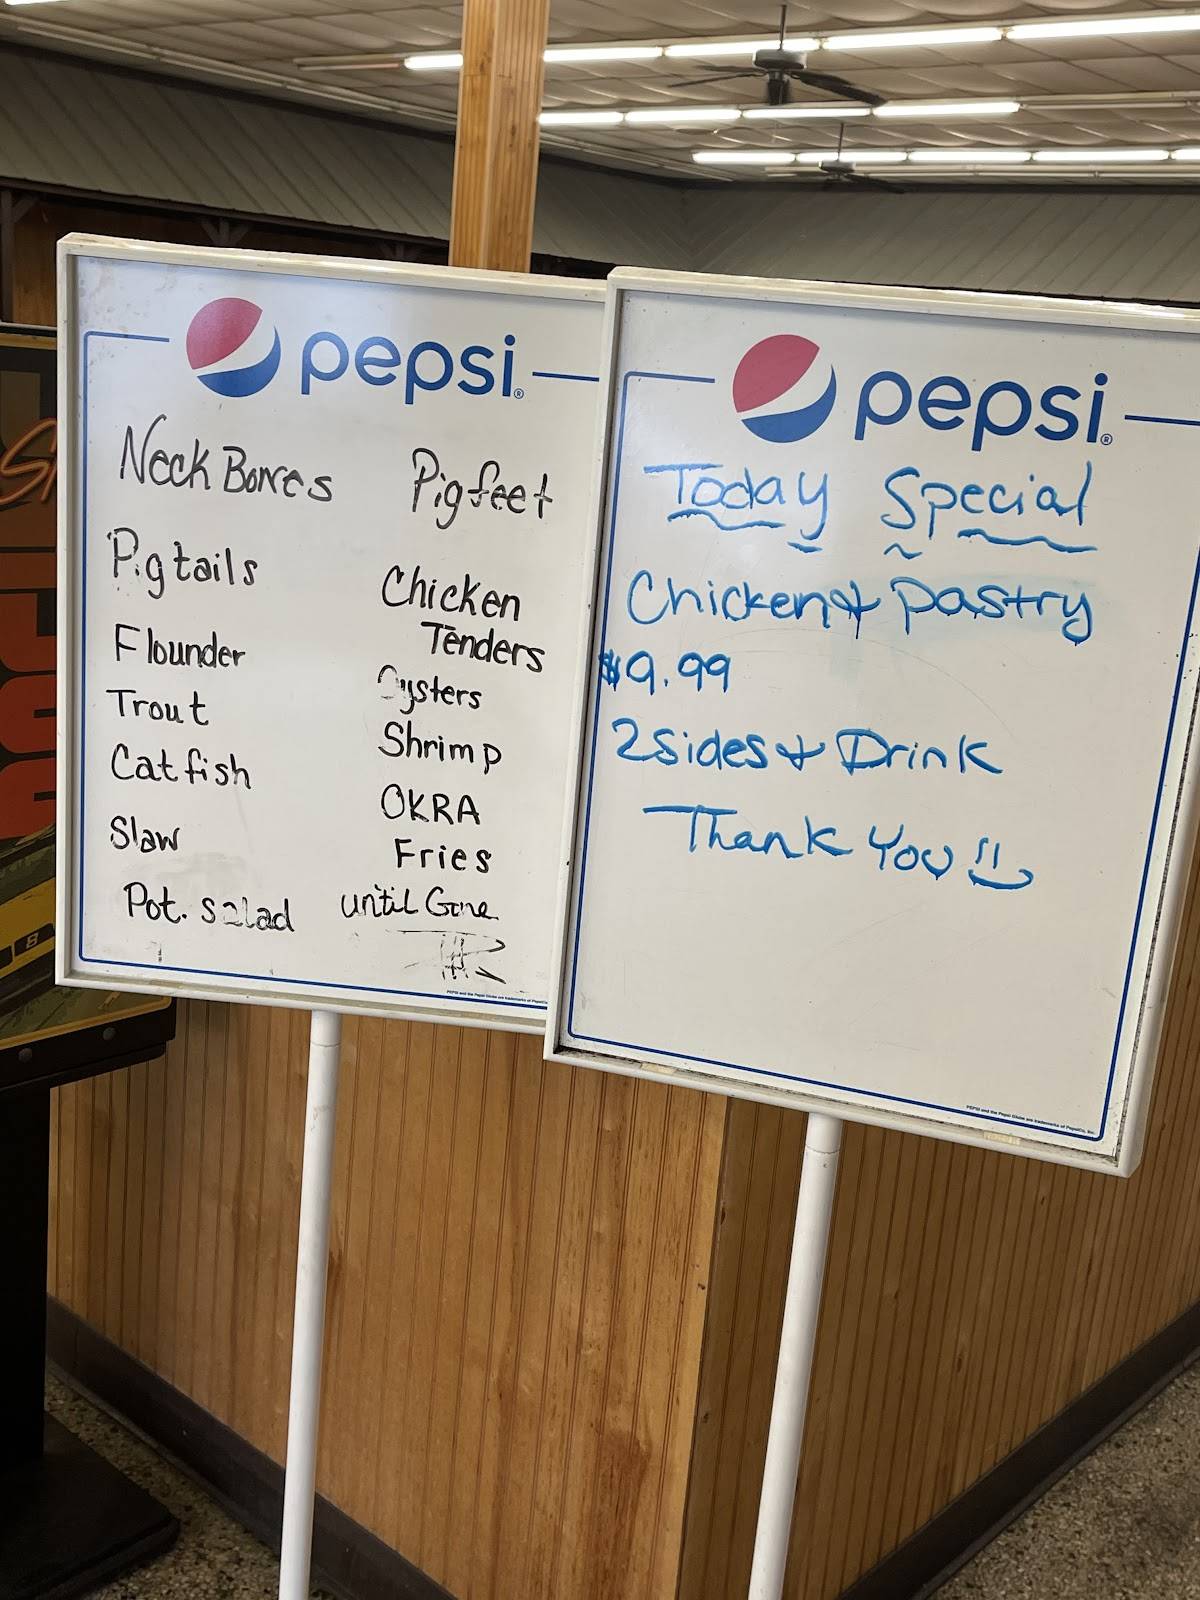 pepsi
Neck Bones
Pigtails
Flounder
Trout
Catfish
Slaw
Pot. salad
Pigfeet
Chicken
Tenders
Oysters
Shrimp
OKRA
Fries
until Gone
pepsi
Today Special
Chicken & pastry
$9.99
2 sides & Drink
Thank You
PEPSI and the Pepsi Globe are trademarks of PepsiCo, Inc.
8